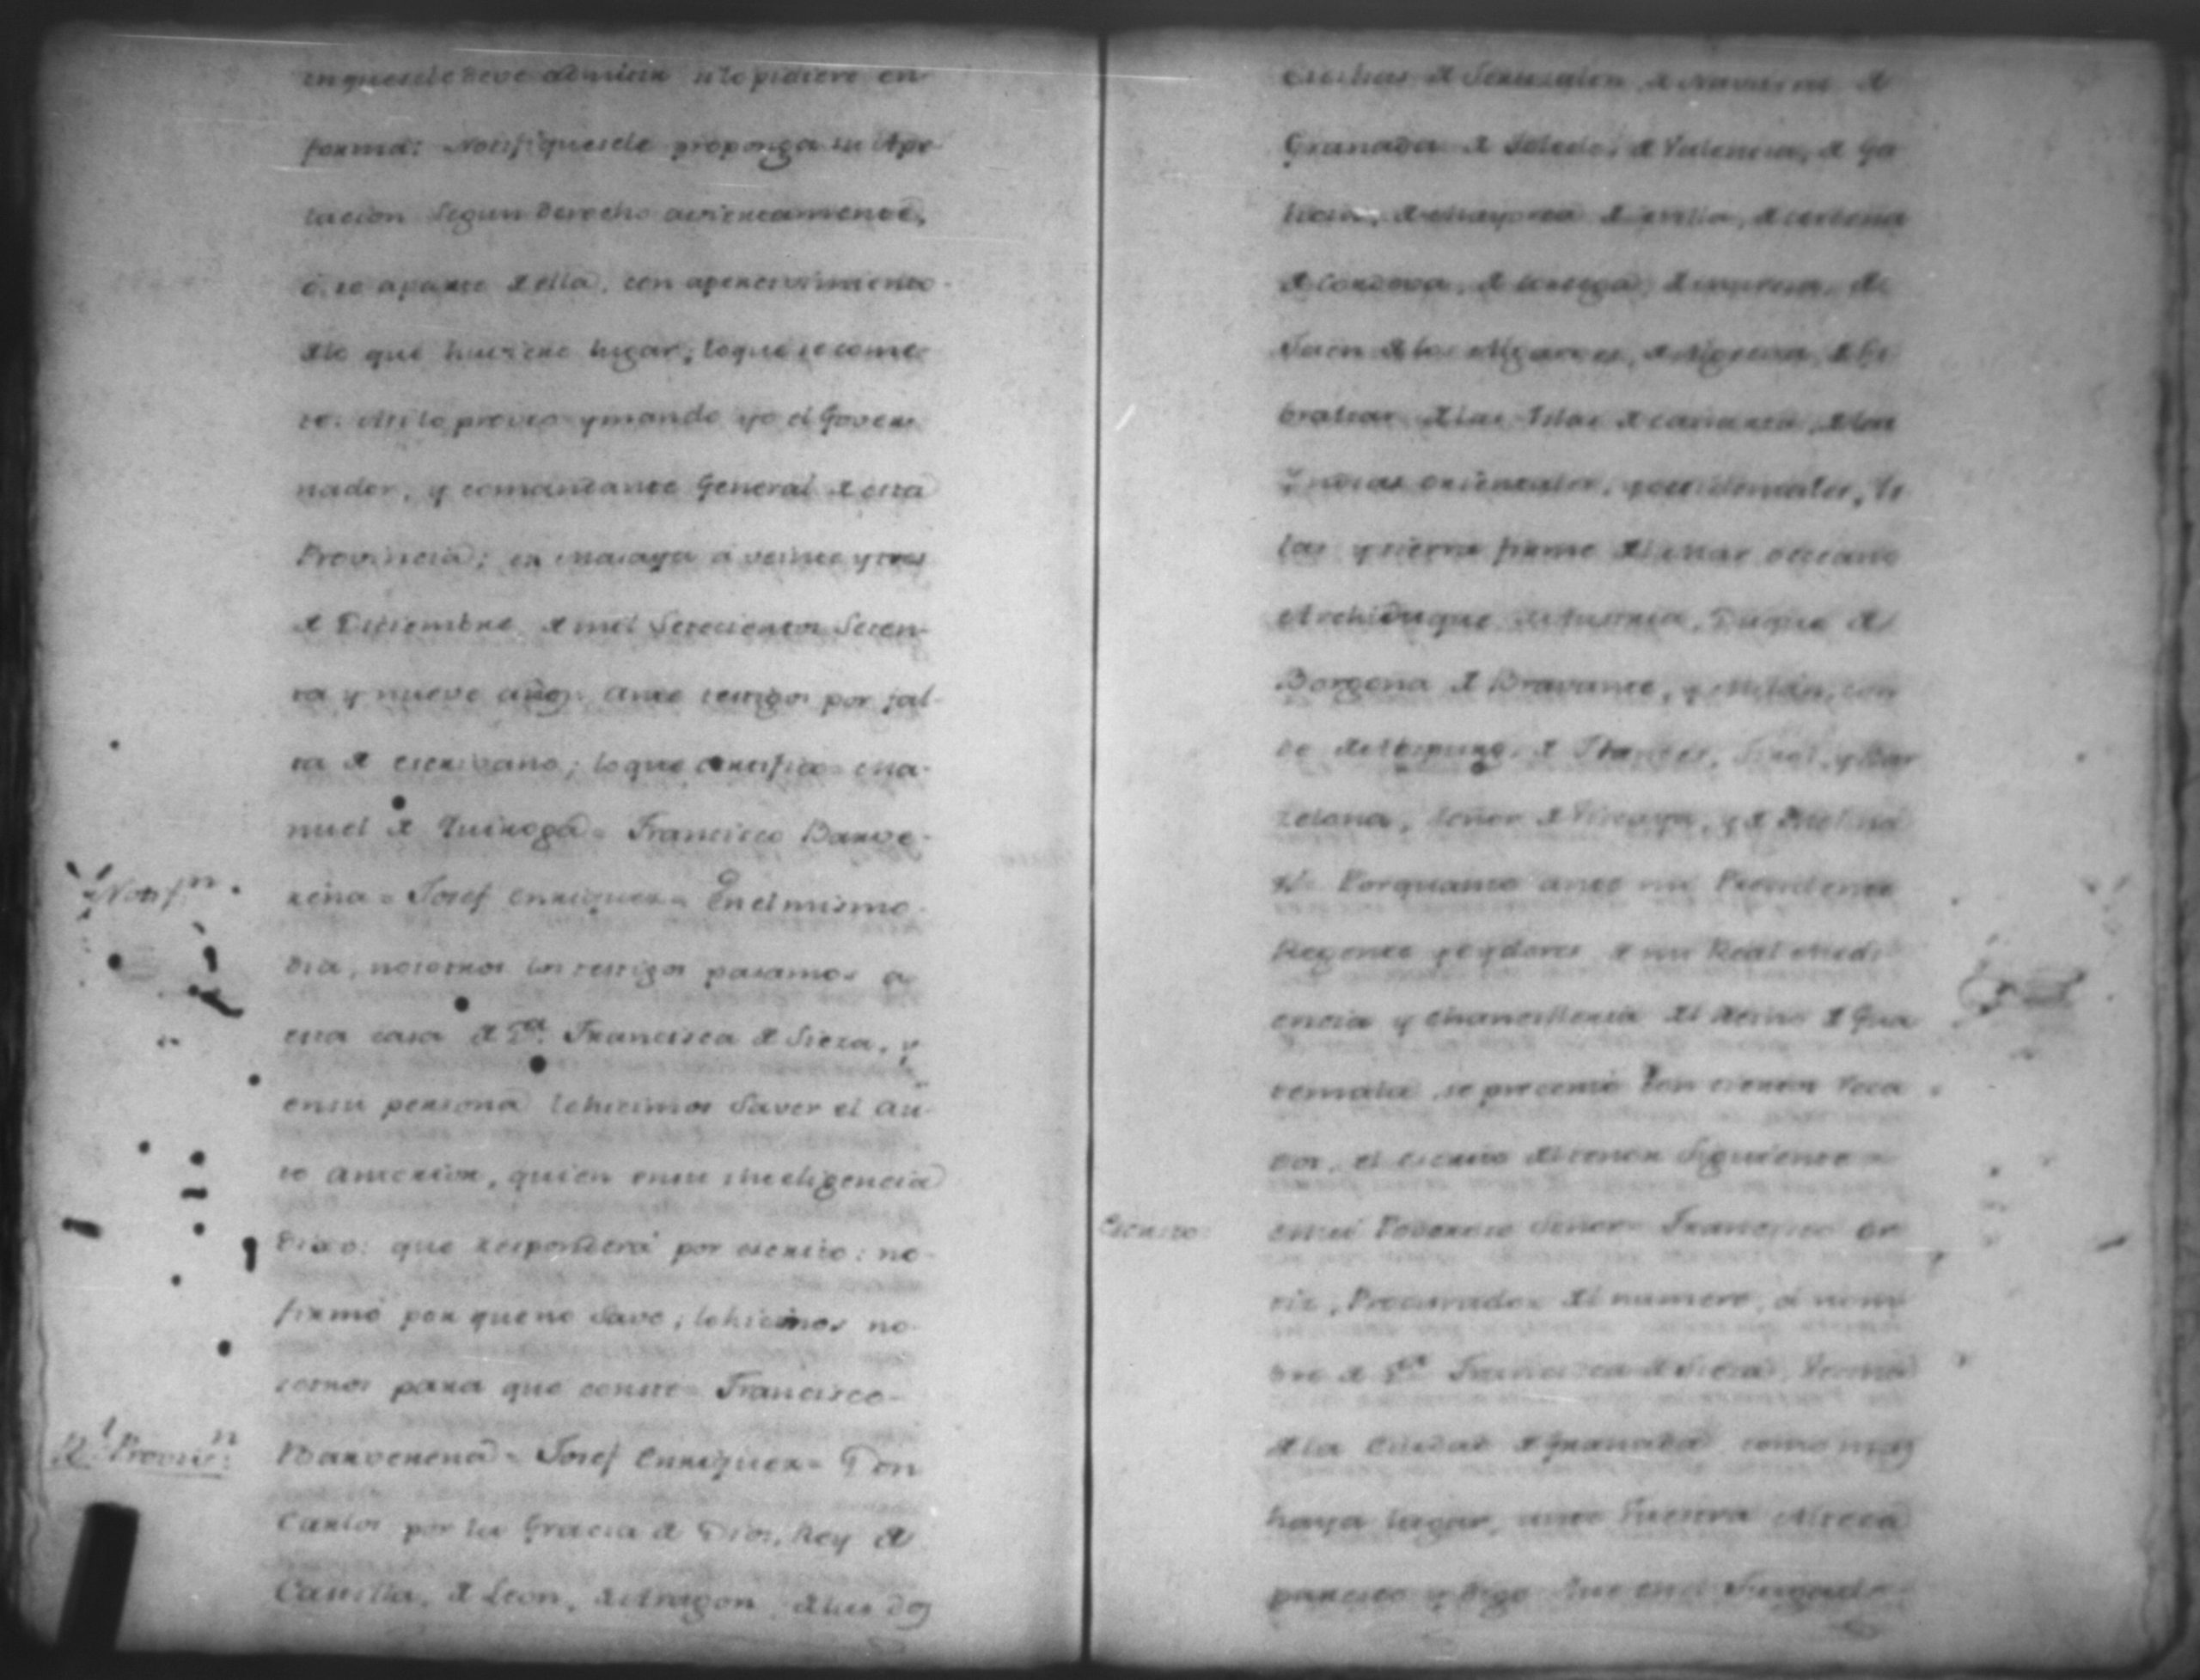 en que se le deve admitir si lo pidiere en
forma: Notifiquesele proponga su Ape-
lacion segun derecho
ó se aparte de ella, con apercevimiento
de lo que huviere lugar; lo que se come-
te. Asi lo proveo y mando yo el Gover-
nador, y comandante General de esta
Provincia; en Masaya á veinte y tres
de Diciembre de mil Setecientos Seten-
ta y nueve años. ante testigos por fal-
ta de escrivano; lo que certifico = Ma-
nuel de Quiroga = Francisco Barve-
Notif.n
rena = Josef Enriquez = En el mismo
dia, nosotros los testigos pasamos a
esta casa de D.a Francisca de Sieza, y
en su persona le hicimos Saver el au-
to anterior, quien en su inteligencia
Dixo: que responderá por escrito: no
firmó por que no Save; lo hicimos no-
sotros para que conste = Francisco
R.l Provis.n
Barverena = Josef Enriquez = Don
Carlos por la Gracia de Dios, Rey de
Castilla, de Leon, de Aragon, de las dos
Cicilias de Jerusalen, de Navarra de
Granada de Toledo, de Valencia, de Ga
licia, de Mayorca de Sevilla, de Cerdena
de Cordova, de Corcega, de Murcia, de
Jaen de los Algarves, de Algecira, de Gi
braltar de las Yslas de Canaria, de las
Yndias orientales, y occidentales, Is
las y tierra firme del Mar occeano
Archiduque de Austria, Duque de
Borgona de Bravante, y Milan, con
de de Abspurg, de Flandes, Tirol, y Bar
zelona, Señor de Viscaya, y de Molina
&.a Porquanto ante mi Presidente
Regente y oydores de mi Real Audi
encia y chancilleria del Reino de Gua
temala, se presentó
el escrito del tenor Siguiente =
Escrito
Mui Poderoso Señor = Francisco Or
tiz, Procurador del numero, á nom
bre de D.a Francisca de Sieza, Vecina
de la Ciudad de Granada como mas
haya lugar, ante Vuestra Alteza
paresco y digo Que en el